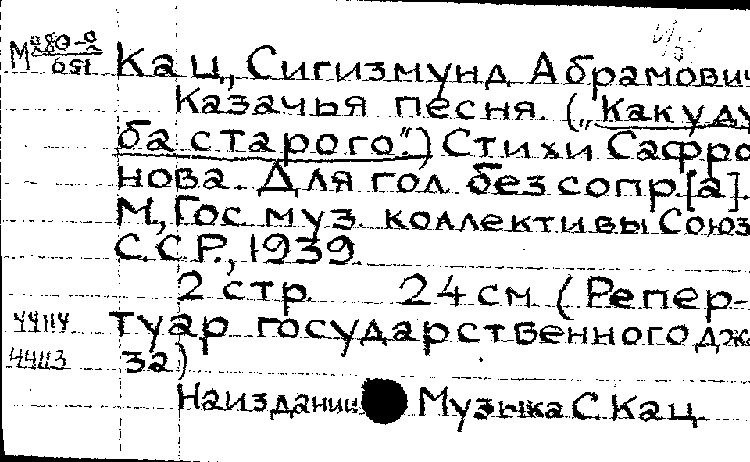 М 280-9
051
Кац, Сигизмунд Абрамович
Казачья песня. („Как у ду
ба старого".) Стихи Сафро
нова. Для гол. без сопр.[а].
М, Гос. муз. коллективы Союз
С.С.Р., 1939.
2 стр. 24 см. (Репер-
44114 туар государственного джа
44113 за)
На издании: Музыка С. Кац.